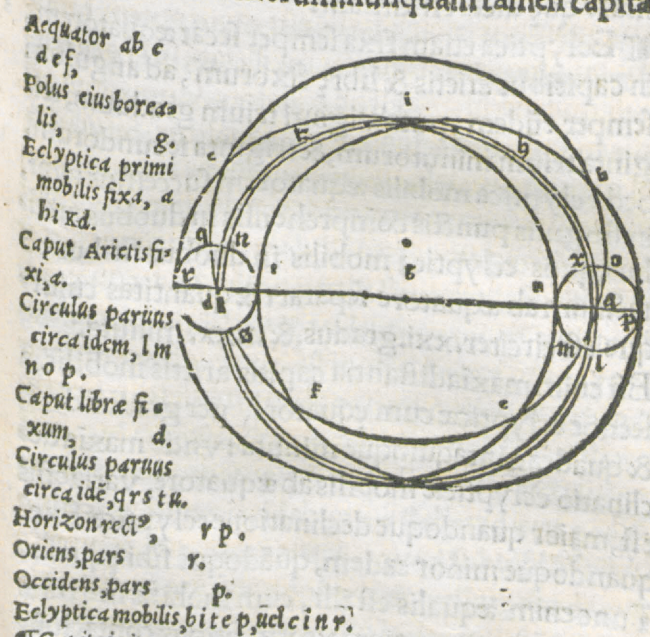 nunquam tamen capita
Aequator ab c
d e f,
Polus eius borea-
lis g.
Eclyptica primi
mobilis fixa, a
h i k d.
Caput Arietis fi-
xi, a.
Circulus paruus
circa idem, l m
n o p.
Caput libræ fi-
xum d.
Circulus paruus
circa idē, q r s t u.
Horizon rectꝰ, r p.
Oriens, pars r.
Occidens, pars p.
Ecliptica mobilis, b i t e p, uel c i n r.
i
k
h
c
b
q
n
x
o
t
g
r
n
d
a
p
s
m
l
f
e